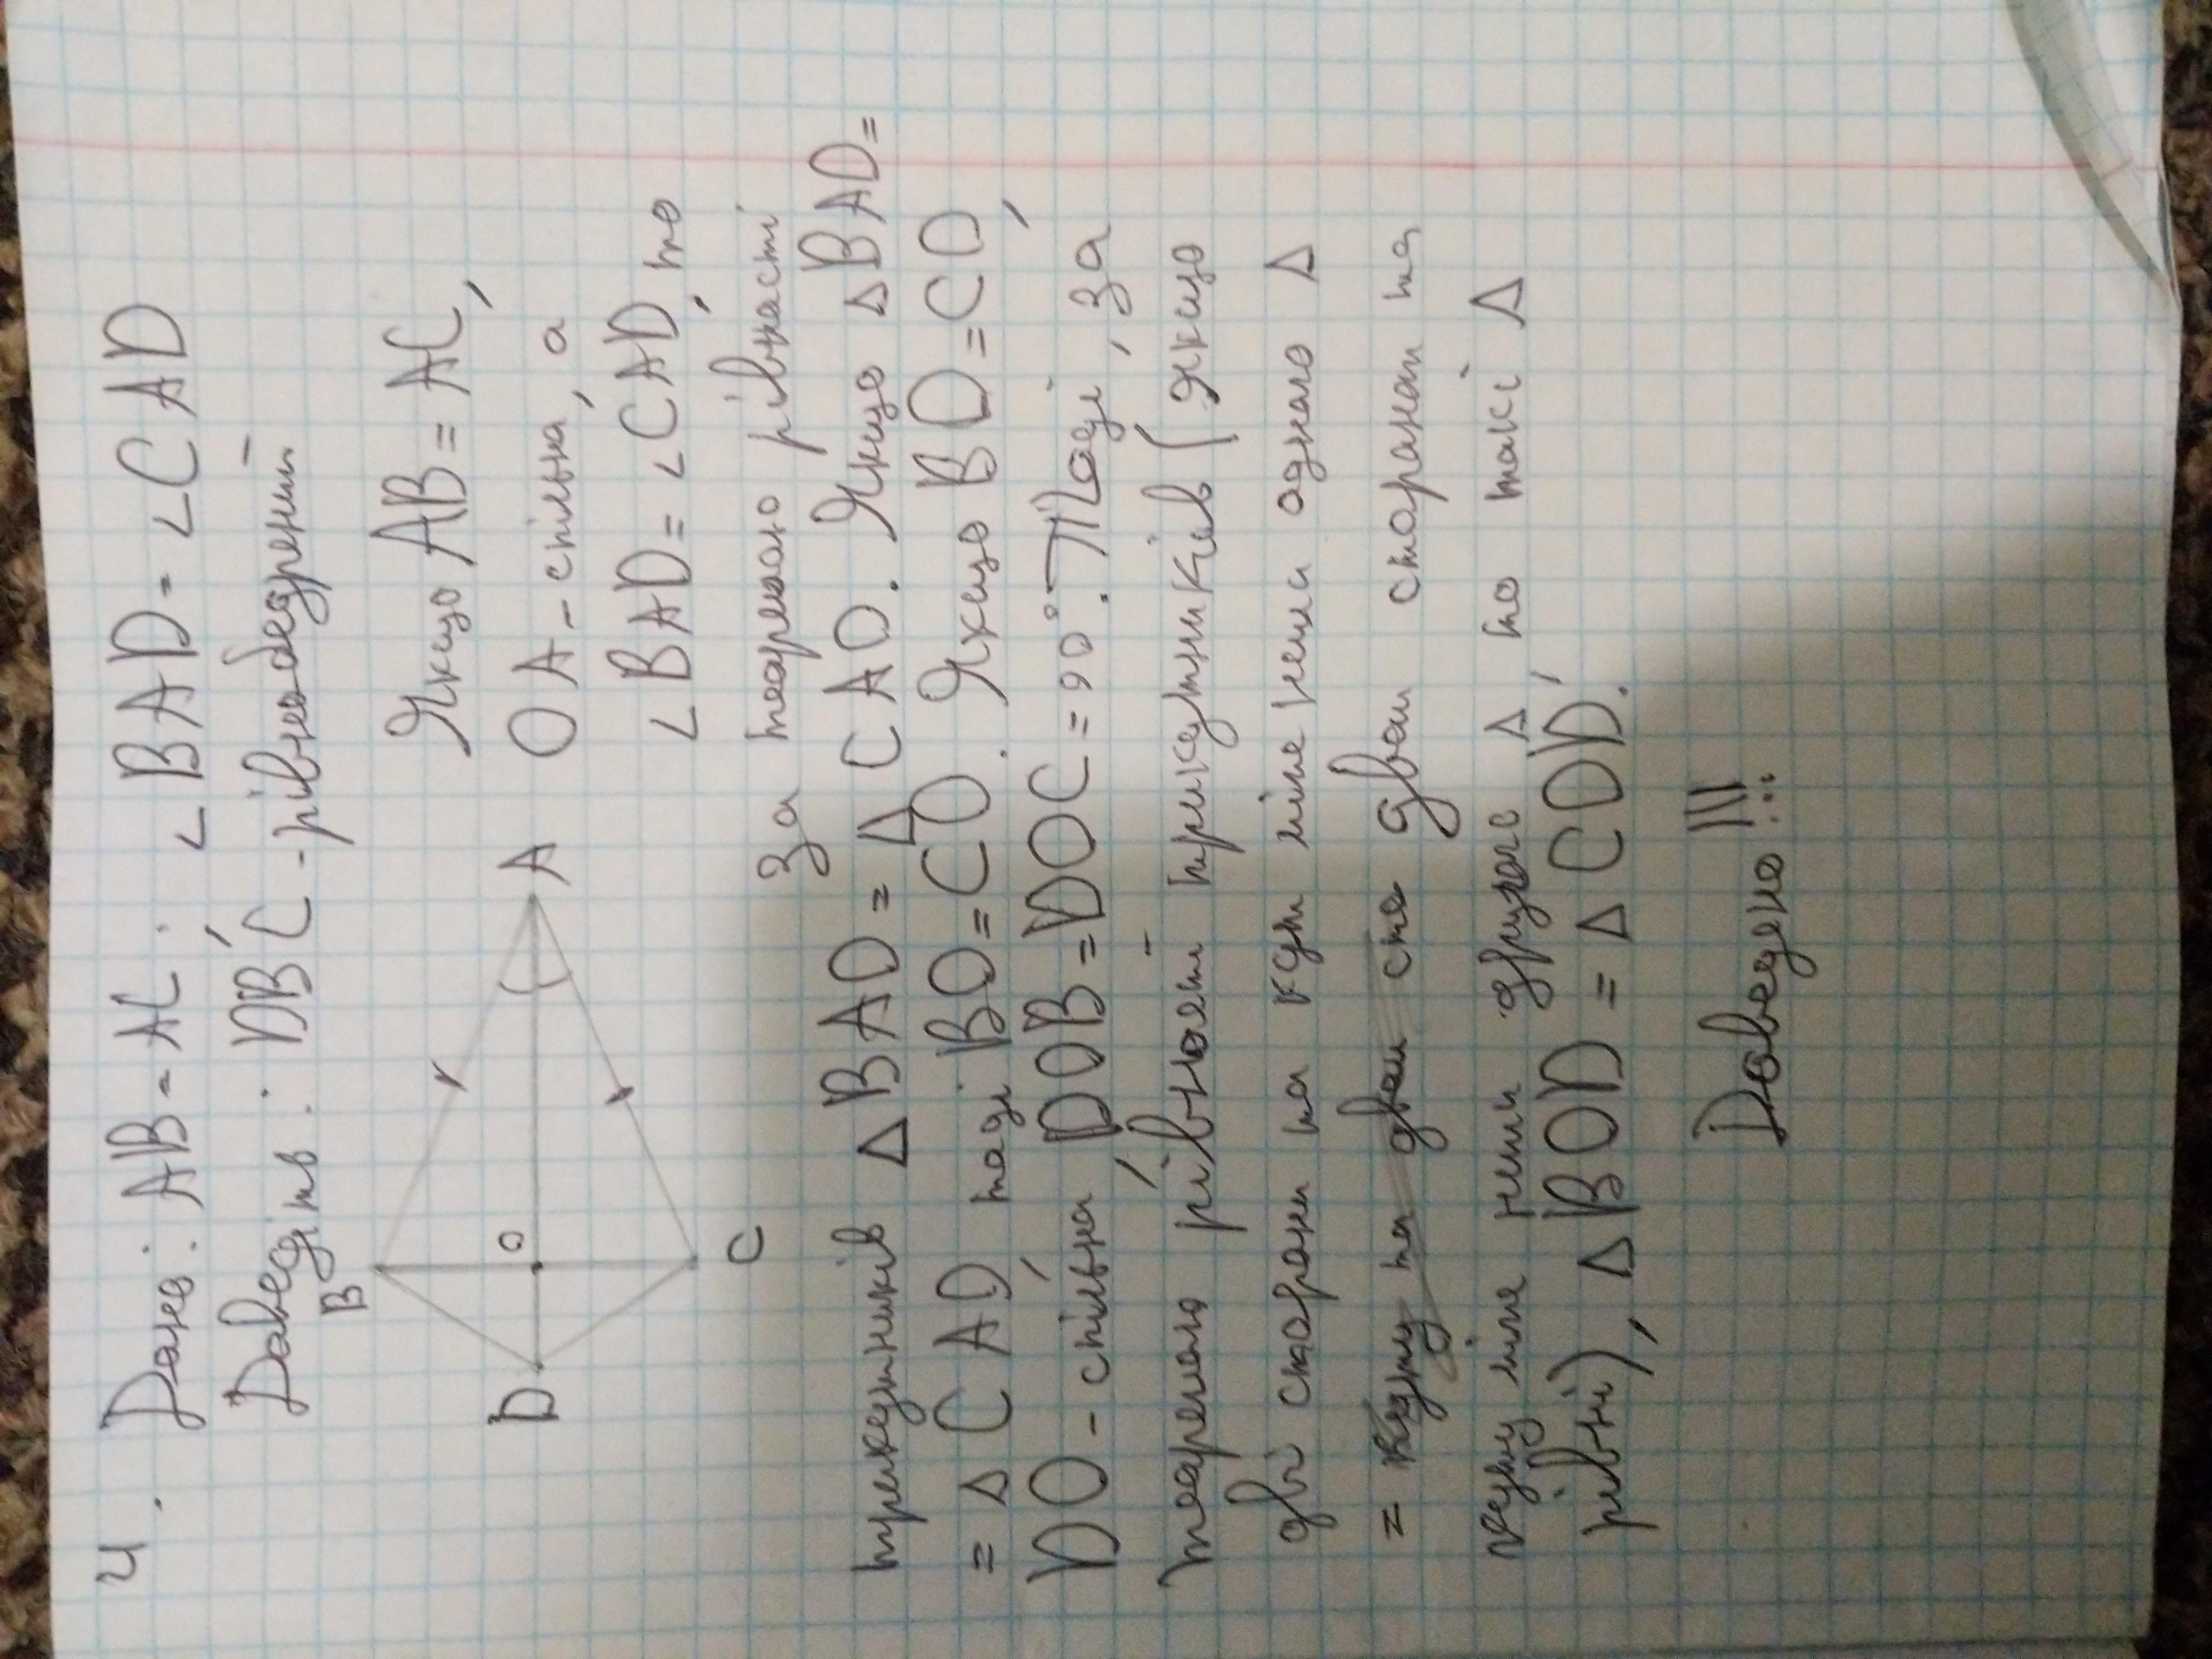 4. Дано: AB = AC. ∠BAD = ∠CAD
Доведіть: DBC - рівнобедрений
B
O
D
A
C
Якщо AB = AC,
OA - спільна, а
∠BAD = ∠CAD, то
за теоремою рівності
трикутників ΔBAO = ΔCAO. Якщо ΔBAO =
= ΔCAO, тоді BO = CO. Якщо BO = CO,
DO - спільна, DOB = DOC = 90°. Тоді, за
теоремою рівності трикутників (якщо
дві сторони та кут між ними одного Δ
= куту та двом сто двом сторонам та
куту між ними другого Δ, то такі Δ
рівні), ΔBOD = ΔCOD.
Доведено!!!